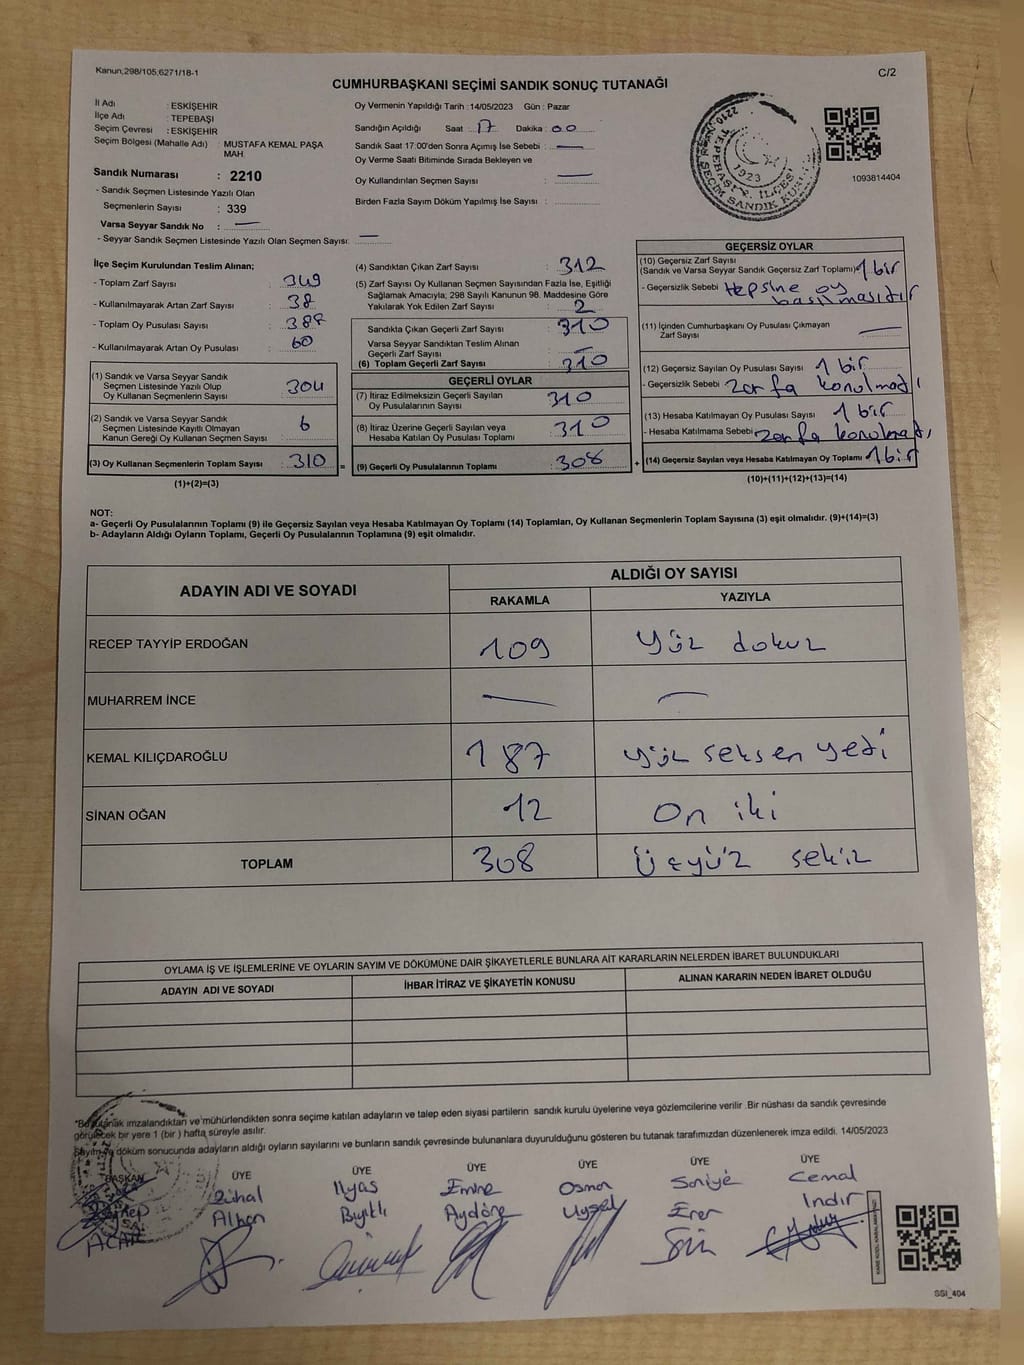 Kanun;298/105;6271/18-1
C/2
CUMHURBAŞKANI SEÇİMİ SANDIK SONUÇ TUTANAĞI
İl Adı : ESKİŞEHİR
İlçe Adı : TEPEBAŞI
Seçim Çevresi : ESKİŞEHİR
Seçim Bölgesi (Mahalle Adı) : MUSTAFA KEMAL PAŞA
MAH
Sandık Numarası : 2210
- Sandık Seçmen Listesinde Yazılı Olan
Seçmenlerin Sayısı : 339
Varsa Seyyar Sandık No : —
- Seyyar Sandık Seçmen Listesinde Yazılı Olan Seçmen Sayısı: —
Oy Vermenin Yapıldığı Tarih :14/05/2023 Gün : Pazar
Sandığın Açıldığı Saat : 17 Dakika : 00
Sandık Saat 17:00'den Sonra Açımış İse Sebebi : —
Oy Verme Saati Bitiminde Sırada Bekleyen ve
Oy Kullandırılan Seçmen Sayısı : —
Birden Fazla Sayım Döküm Yapılmış İse Sayısı :
2210
TEPEBAŞI İLÇESİ
SEÇİM SANDIK KURULU
1923
1093814404
İlçe Seçim Kurulundan Teslim Alınan;
- Toplam Zarf Sayısı : 349
- Kullanılmayarak Artan Zarf Sayısı : 38
- Toplam Oy Pusulası Sayısı :
- Kullanılmayarak Artan Oy Pusulası : 60
(1) Sandık ve Varsa Seyyar Sandık
Seçmen Listesinde Yazılı Olup
Oy Kullanan Seçmenlerin Sayısı : 304
(2) Sandık ve Varsa Seyyar Sandık
Seçmen Listesinde Kayıtlı Olmayan
Kanun Gereği Oy Kullanan Seçmen Sayısı : 6
(3) Oy Kullanan Seçmenlerin Toplam Sayısı : 310 =
(1)+(2)=(3)
(4) Sandıktan Çıkan Zarf Sayısı : 312
(5) Zarf Sayısı Oy Kullanan Seçmen Sayısından Fazla İse, Eşitliği
Sağlamak Amacıyla; 298 Sayılı Kanunun 98. Maddesine Göre
Yakılarak Yok Edilen Zarf Sayısı : 2
Sandıkta Çıkan Geçerli Zarf Sayısı : 310
Varsa Seyyar Sandıktan Teslim Alınan
Geçerli Zarf Sayısı : —
(6) Toplam Geçerli Zarf Sayısı : 310
GEÇERLİ OYLAR
(7) İtiraz Edilmeksizin Geçerli Sayılan
Oy Pusulalarının Sayısı : 310
(8) İtiraz Üzerine Geçerli Sayılan veya
Hesaba Katılan Oy Pusulası Toplamı : 310
(9) Geçerli Oy Pusulalarının Toplamı : 308 +
GEÇERSİZ OYLAR
(10) Geçersiz Zarf Sayısı
(Sandık ve Varsa Seyyar Sandık Geçersiz Zarf Toplamı) : 1 bir
- Geçersizlik Sebebi : Hepsine oy
basılmasıdır
(11) İçinden Cumhurbaşkanı Oy Pusulası Çıkmayan
Zarf Sayısı : —
(12) Geçersiz Sayılan Oy Pusulası Sayısı : 1 bir
- Geçersizlik Sebebi : Zarfa konulmadı
(13) Hesaba Katılmayan Oy Pusulası Sayısı : 1 bir
- Hesaba Katılmama Sebebi : zarfa konulmadı
(14) Geçersiz Sayılan veya Hesaba Katılmayan Oy Toplamı : 1 bir
(10)+(11)+(12)+(13)=(14)
NOT:
a- Geçerli Oy Pusulalarının Toplamı (9) ile Geçersiz Sayılan veya Hesaba Katılmayan Oy Toplamı (14) Toplamları, Oy Kullanan Seçmenlerin Toplam Sayısına (3) eşit olmalıdır. (9)+(14)=(3)
b- Adayların Aldığı Oyların Toplamı, Geçerli Oy Pusulalarının Toplamına (9) eşit olmalıdır.
ADAYIN ADI VE SOYADI
ALDIĞI OY SAYISI
RAKAMLA YAZIYLA
RECEP TAYYİP ERDOĞAN 109 Yüz dokuz
MUHARREM İNCE — —
KEMAL KILIÇDAROĞLU 187 Yüz seksen yedi
SİNAN OĞAN 12 On iki
TOPLAM 308 Üçyüz sekiz
OYLAMA İŞ VE İŞLEMLERİNE VE OYLARIN SAYIM VE DÖKÜMÜNE DAİR ŞİKAYETLERLE BUNLARA AİT KARARLARIN NELERDEN İBARET BULUNDUKLARI
ADAYIN ADI VE SOYADI İHBAR İTİRAZ VE ŞİKAYETİN KONUSU ALINAN KARARIN NEDEN İBARET OLDUĞU
*Bu tutanak imzalandıktan ve mühürlendikten sonra seçime katılan adayların ve talep eden siyasi partilerin sandık kurulu üyelerine veya gözlemcilerine verilir .Bir nüshası da sandık çevresinde
görülecek bir yere 1 (bir ) hafta süreyle asılır.
Sayım ve döküm sonucunda adayların aldığı oyların sayılarını ve bunların sandık çevresinde bulunanlara duyurulduğunu gösteren bu tutanak tarafımızdan düzenlenerek imza edildi. 14/05/2023
BAŞKAN ÜYE ÜYE ÜYE ÜYE ÜYE ÜYE
Zeynep Zühal İlyas Emine Osman Saniye Cemal
ACAR Alhan Bıyıklı Aydöne Uysal Erer İndir
SSI_404